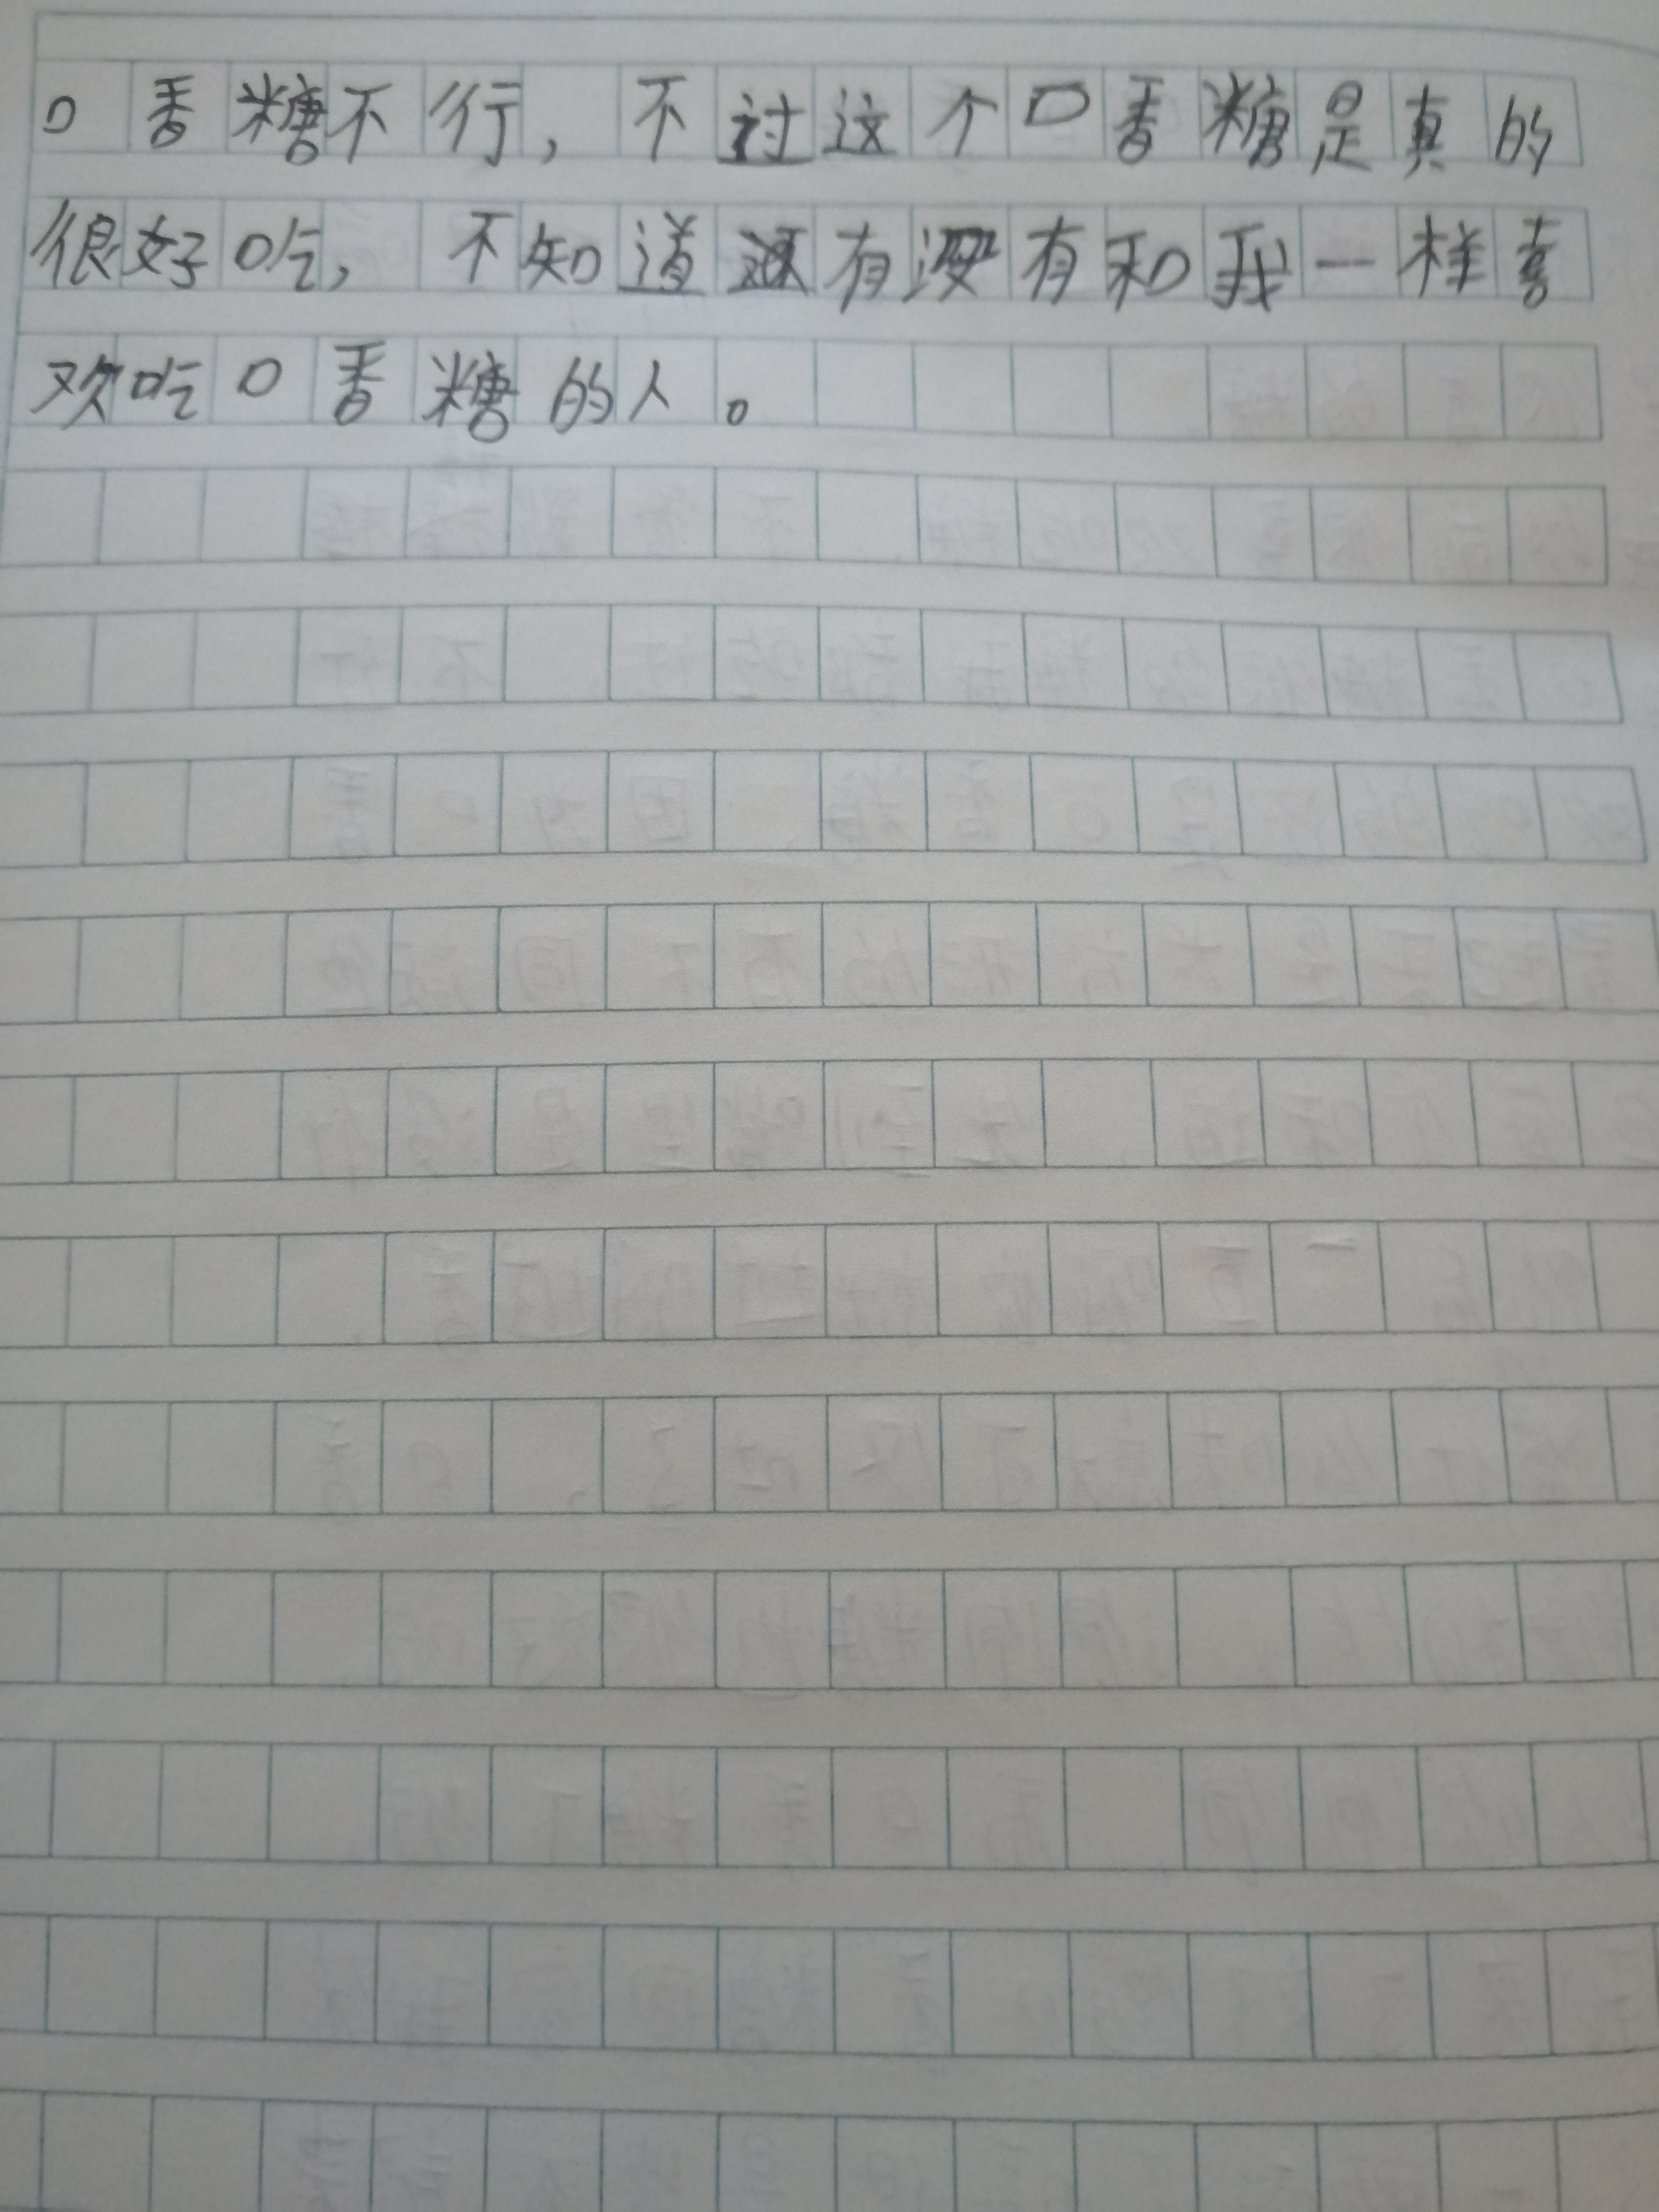 口香糖不行，不过这个口香糖是真的
很好吃，不知道还有没有和我一样喜
欢吃口香糖的人。